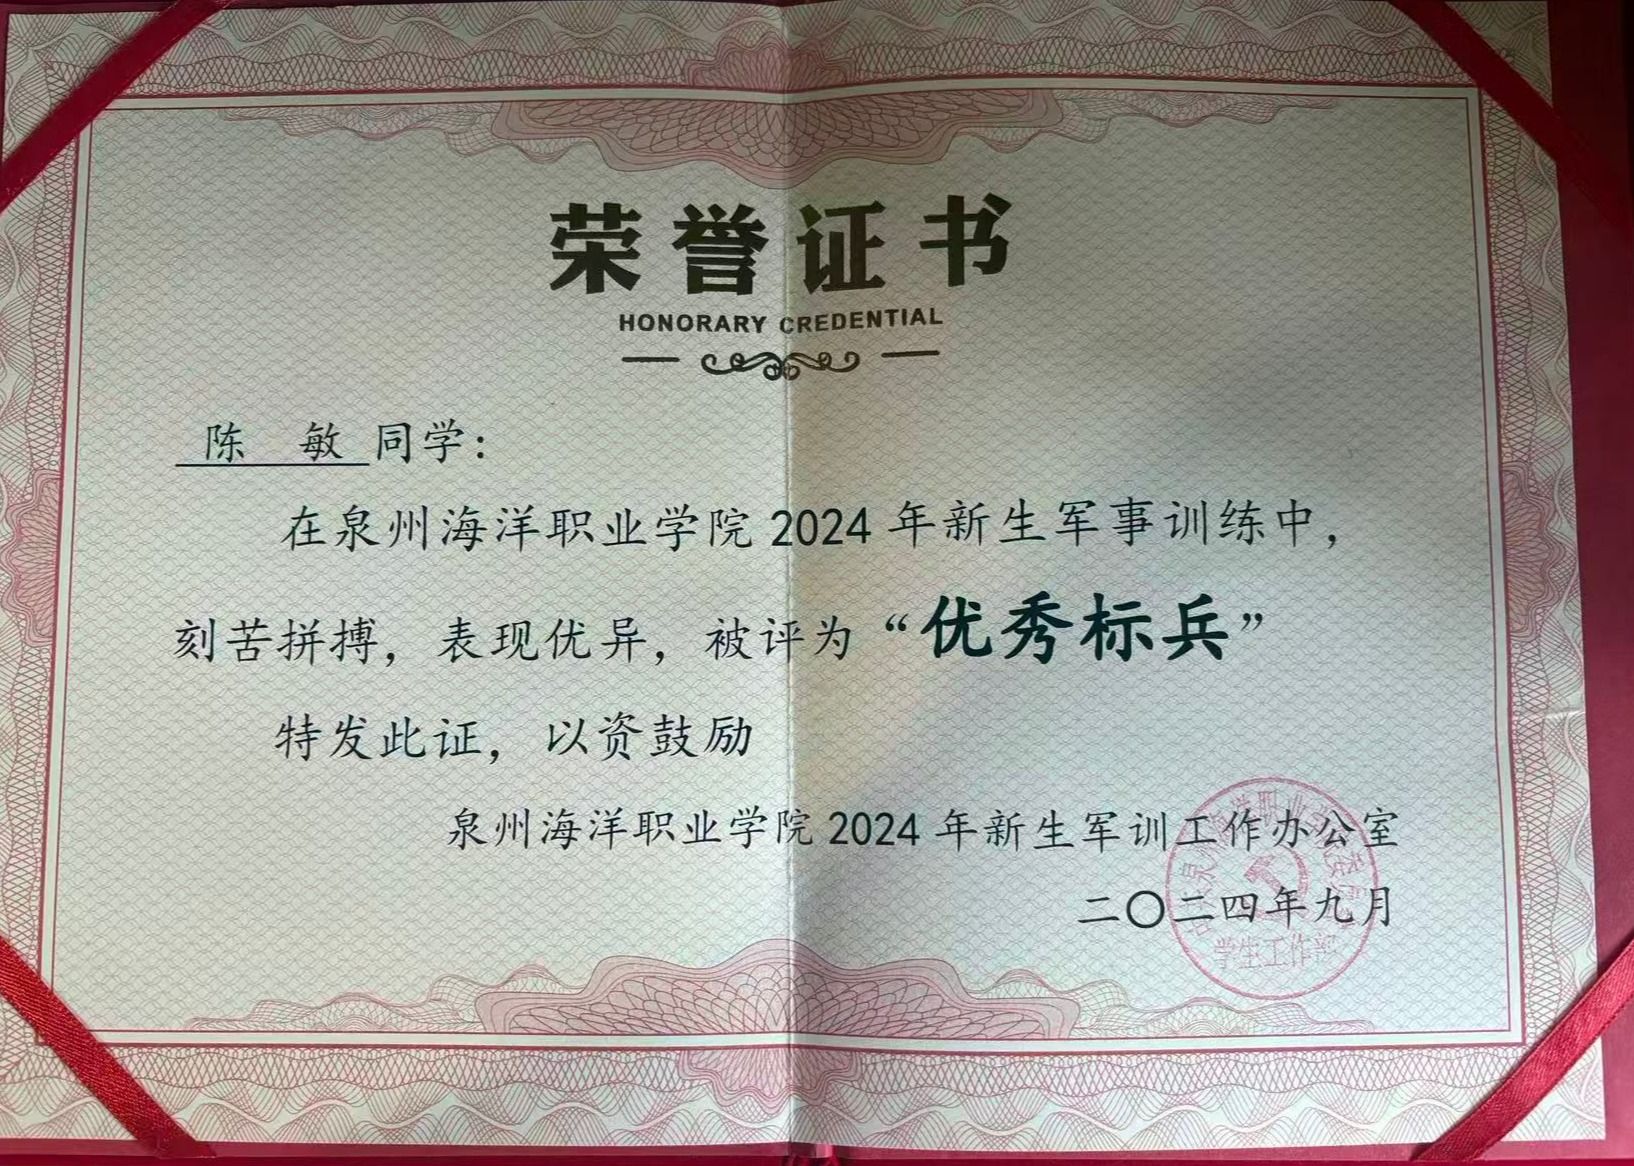 荣誉证书
HONORARY CREDENTIAL
陈 敏 同学：
在泉州海洋职业学院 2024 年新生军事训练中，
刻苦拼搏，表现优异，被评为“优秀标兵”
特发此证，以资鼓励
泉州海洋职业学院 2024 年新生军训工作办公室
二〇二四年九月
学生工作部